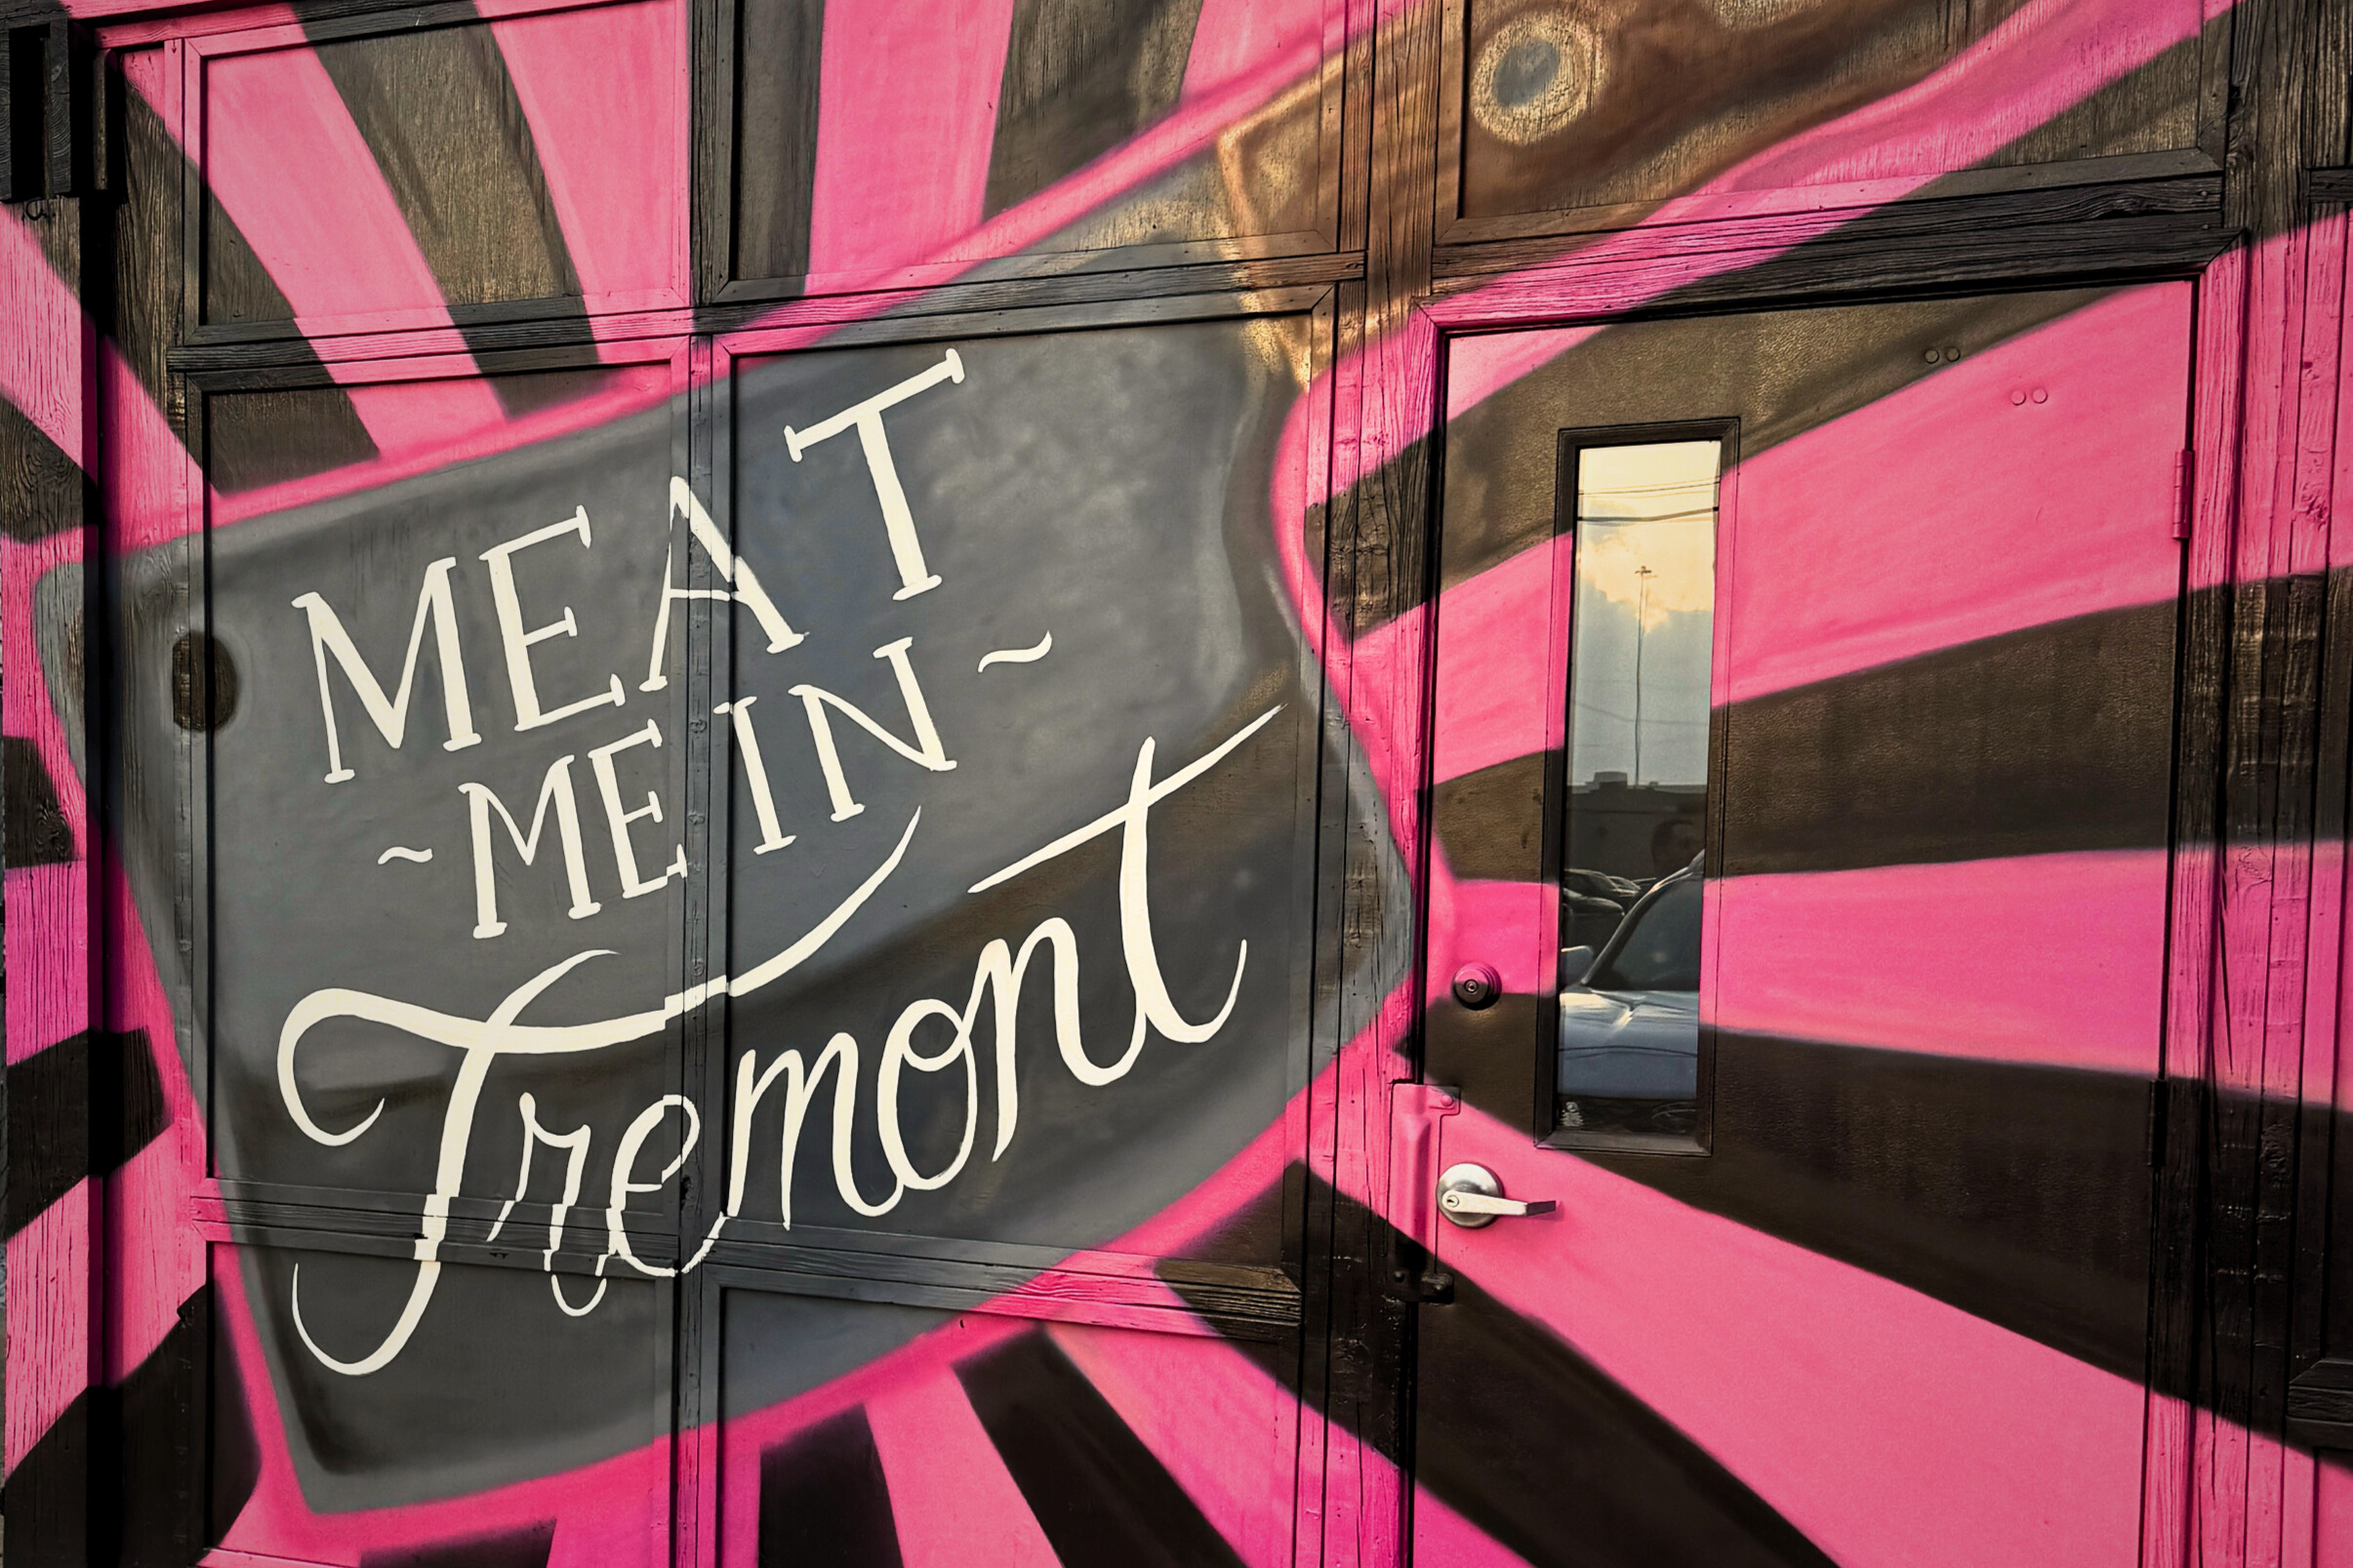 MEAT
~MEIN~
Tremont